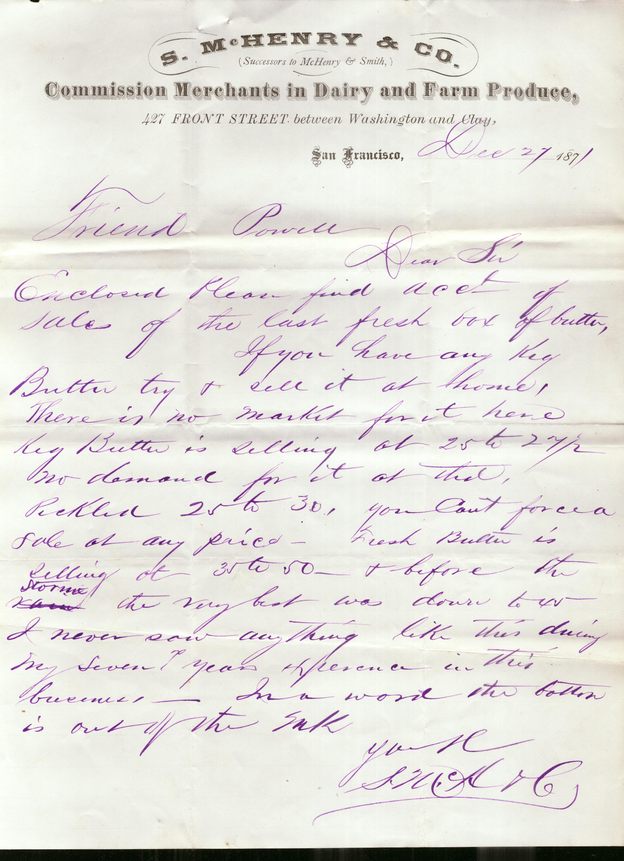 S. McHENRY & CO.
(Successors to McHenry & Smith,)
Commission Merchants in Dairy and Farm Produce,
427 FRONT STREET between Washington and Clay,
San Francisco, Dec 27 1871
Friend Powell
Dear Sir
Enclosed Please find acct of
sales of the last fresh box of butter,
If you have any Keg
Butter try & sell it at home,
There is no market for it here
Keg Butter is selling at 25 to 27 1/2
no demand for it at that,
Pickled 25 to 30, you Cant force a
sale at any price - Fresh Butter is
selling at 35 to 50 - & before the
storme
rain the very best was down to 45
I never saw anything like this during
my seven years experence in this
business - In a word the bottom
is out of the Mk
S McH & Co